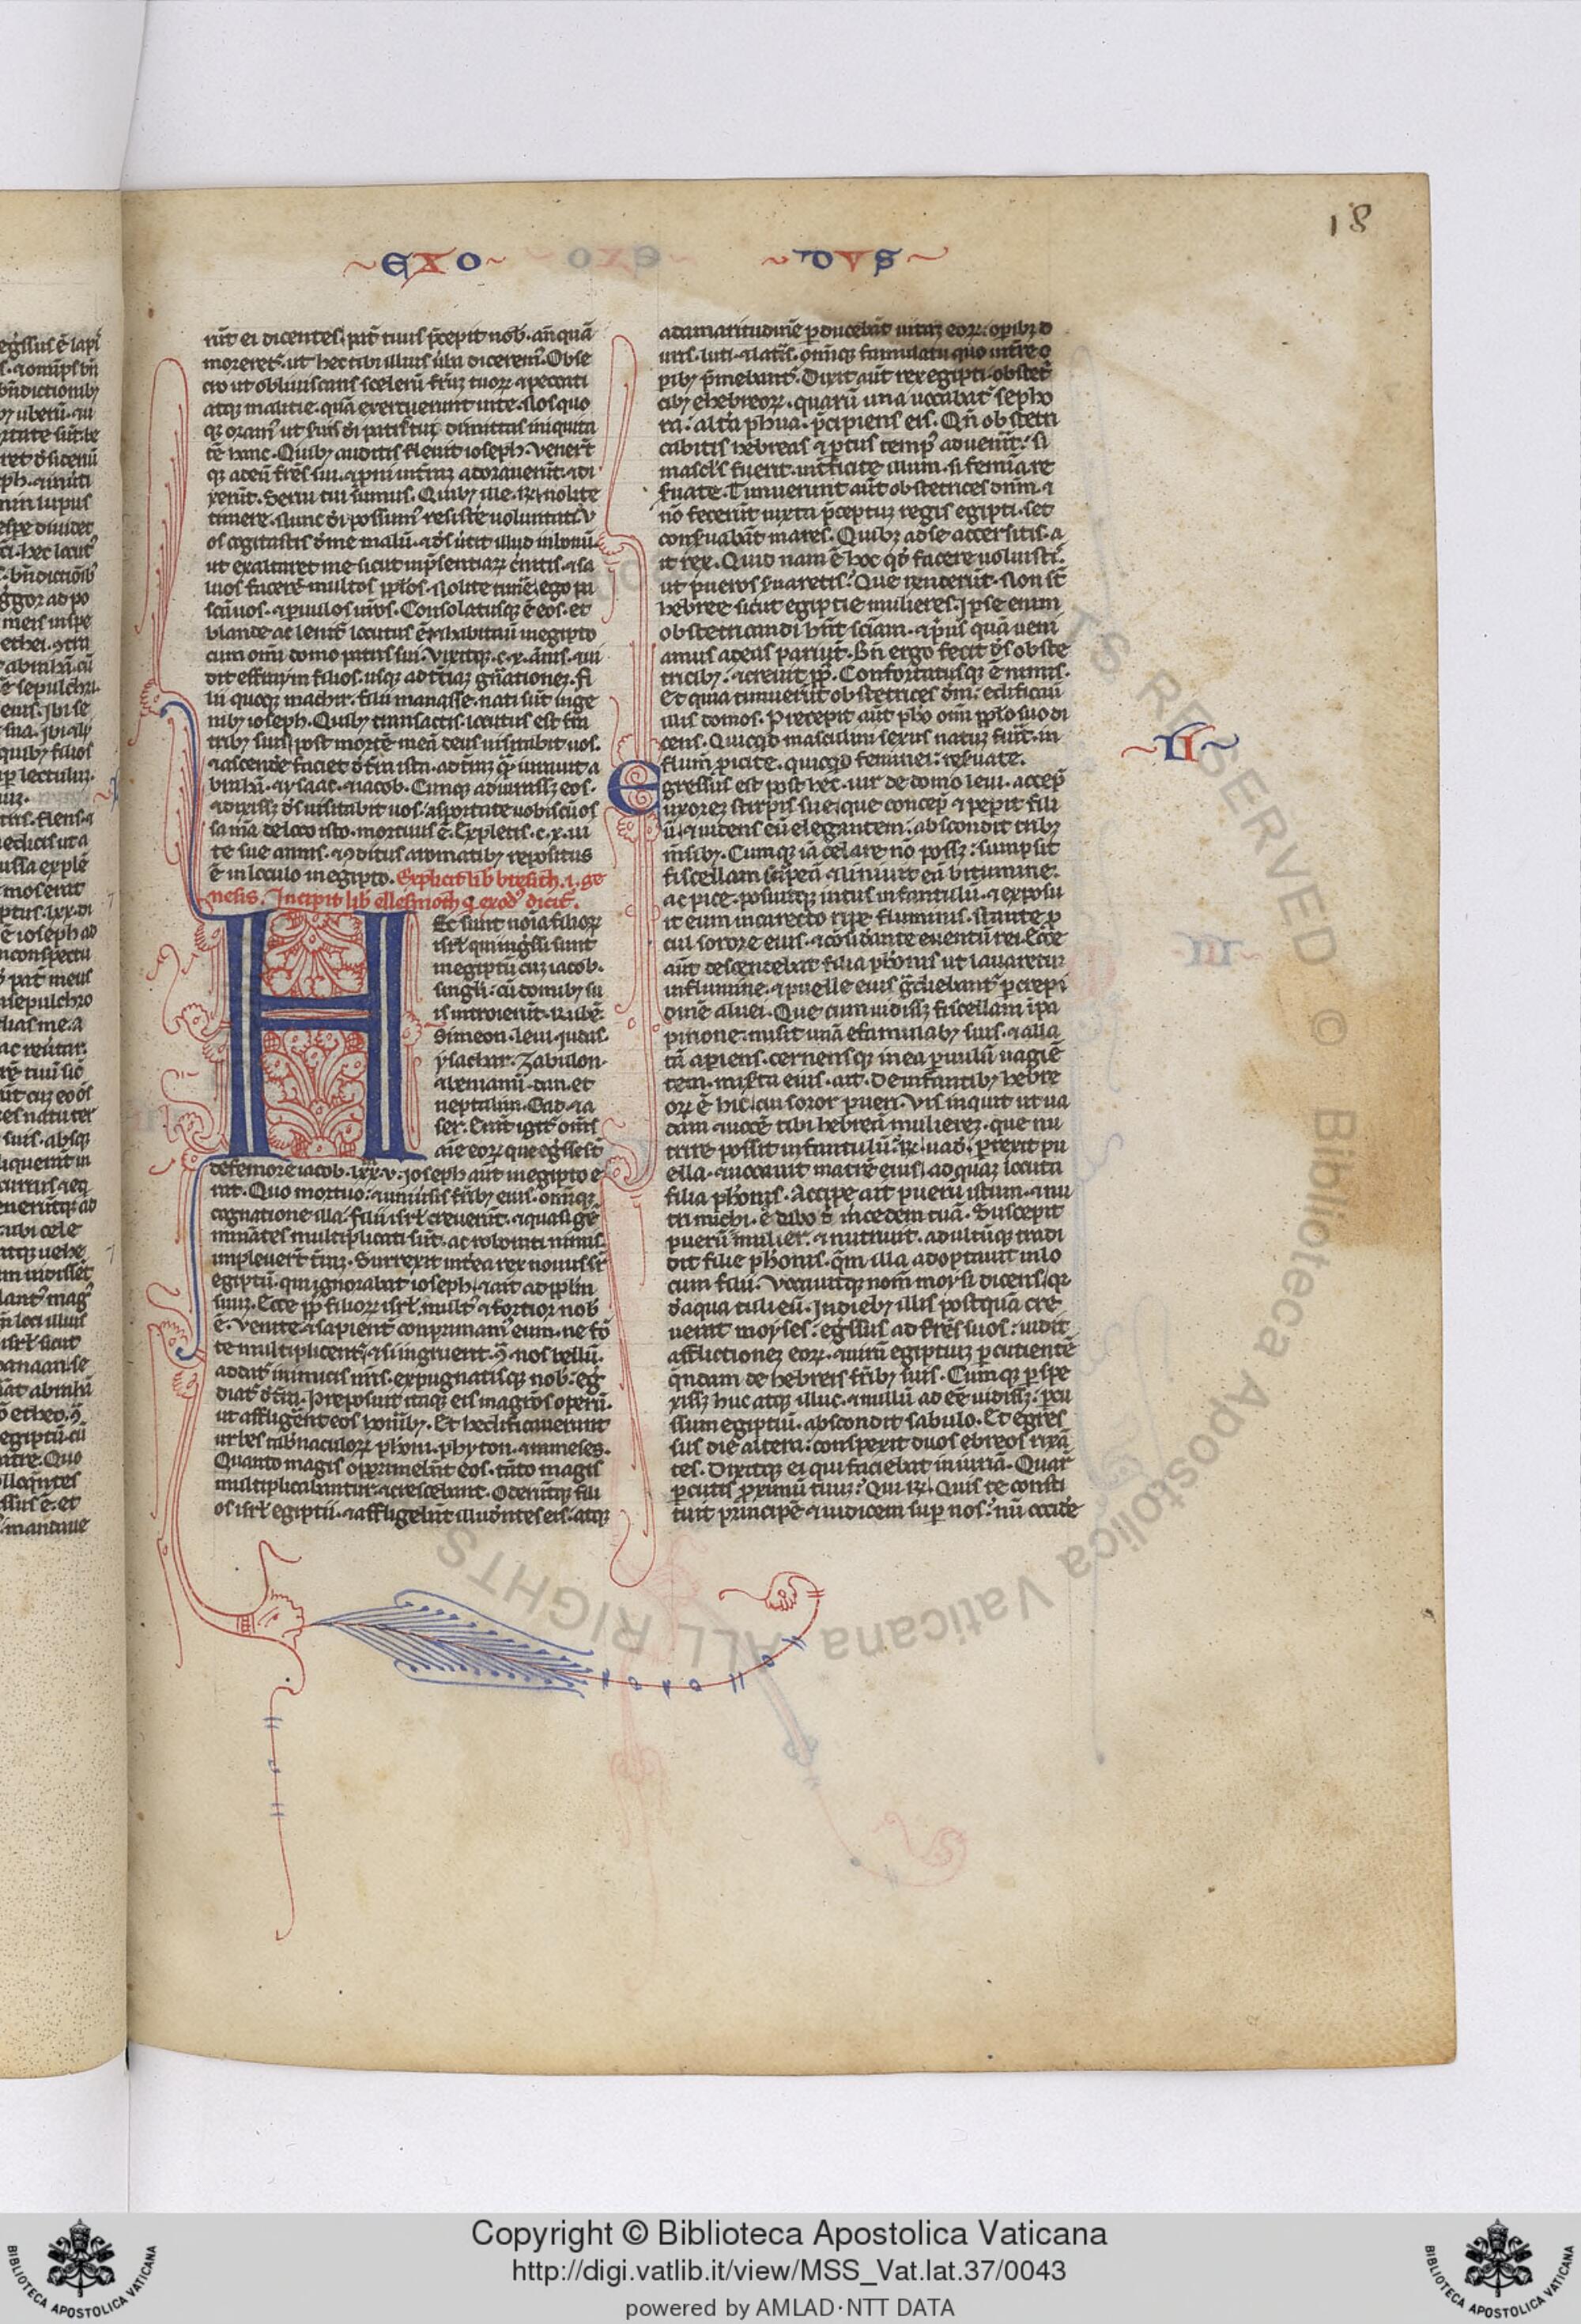 EXO DVS
18
rūt ei dicentes pat̄ tuus p̄cepit nob̄. an̄ quā
moreret᷑. ut hec tibi illius ūbis dicerem᷑. Obse
cro ut obliuiscaris sceleris fr̄uꝫ tuoꝝ ⁊ peccati
atqꝫ malitie. quā exercuerunt in te. Nos quo
qꝫ oram᷑ ut suis di patris tui dimittas iniquita
tē hanc. Quibꝫ auditis fleuit ioseph. Vener̄t
qꝫ ad eū fr̄es sui. ⁊ proni in t̄raꝫ adorauer̄t. ⁊ di
xer̄t. Serui tui sumus. Quibꝫ ille. R̄. nolite
timere. Nunc di possum᷑ resistē uoluntati. V
os cogitastis de me malū. ⁊ ds̄ ūtit illud in bonū.
ut exaltaret me sicut in p̄sentiaꝝ c̄nitis. ⁊ sa
luos facerē multos pplōs. Nolite timē. ego pa
scā uos. ⁊ paruulos ur̄os. Consolatusqꝫ ē eos. et
blande ac lenit̄ locutus ē. ⁊ habitauit in egipto
cum om̄i domo patris sui. Vixitqꝫ. c. x. ānis. ⁊ ui
dit effraym filios. usqꝫ ad t̄ciaꝫ gn̄ationeꝫ. Fi
lii quoqꝫ machir. filii manasse. nati sūt in ge
nibꝫ ioseph. Quibꝫ transactis. locutus est fra
tribꝫ suis post mortē meā deus uisitabit uos.
⁊ ascendē faciet de t̄ra ista. ad t̄raꝫ qꝫ iurauit a
brahā. ⁊ ysaac. ⁊ iacob. Cumqꝫ adiurassꝫ eos.
⁊ dixissꝫ ds̄ uisitabit uos. asportate uobiscū os
sa mā de loco isto. mortuus ē. Expletis. c. x. ui
te sue annis. ⁊ 9ditus aromatibꝫ repositus
ē in loculo in egipto. Explicit lib bresich. i. ge
nesis. Incipit lib ellesmoth q̄ exod᷑ dicit᷑.
Hec sunt noīa filioꝝ
isrl̄ qui ingr̄ssi sunt
in egiptū cuꝫ iacob.
singli. cū domibꝫ su
is introierūt. Rubē.
Simeon. leui. iudas.
ysachar. Zabulon.
⁊ beniamin. dan. et
neptalim. Gad. ⁊ a
ser. Erāt igit᷑ om̄s
aīe eoꝝ que egr̄sse st̄
de femore iacob. lxx. v. ioseph aūt in egipto e
rat. Quo mortuo. ⁊ uniūsis fr̄ibꝫ eius. om̄iqꝫ
cognatione illa. filii isrl̄ creuer̄t. ⁊ quasi gē
minātes multiplicati sūt. ac roborati nimis
impleuer̄t t̄raꝫ. Surrexit int̄ea rex nouus sr̄
egiptū. qui ignorabat ioseph. ⁊ ait ad pplm̄
suuꝫ. Ecce ppl̄s filioꝝ isrl̄. mult᷑ ⁊ fortior nob̄
ē. Venite. ⁊ sapient̄ conprimam᷑ eum. ne fo
te multiplicent᷑. ⁊ si ingruerit 9̄ nos bellū.
addat᷑ inimicis nr̄is. expugnatisqꝫ nob̄. eḡ
diat᷑ de t̄ra. Preposuit itaqꝫ eis magr̄os operū.
ut affligerēt eos honībꝫ. Et hedificauerunt
urbes tab̄naculoꝝ pharoni. phyton. ⁊ ramesses.
Quanto magis opprimebāt eos. tāto magis
multiplicabantur ⁊ crescebant. Oderūtqꝫ fili
os isrl̄ egiptii. ⁊ affligebāt illudentes eis. atqꝫ
ad amaritudinē p̄ducebāt uitaꝫ eoꝝ. opibꝫ d
uris. luti. ⁊ lateris. om̄iqꝫ famulatu quo in t̄re o
pibꝫ p̄mebant᷑. Dixit aūt rex egipti. obstet̄
cibꝫ ebreoꝝ. quarū una uocabat᷑ sepho
ra. alt̄a phua. p̄cipiens eis. Qn̄ obstetri
cabitis hebreas ⁊ p̄tus temp᷑ aduen̄t. si
mascl̄s fuerit. int̄ficite illum. si femīa. re
seruate. Timuerunt aūt obstetrices dnm̄. ⁊
nō fecer̄t iuxta p̄ceptuꝫ regis egipti. set
conseruabāt mares. Quibꝫ ad se accersitis. a
it rex. Quid nam ē hoc qd̄ facere uoluisti.
ut pueros seruaretis. Que rn̄derūt. Non st̄
hebree sicut egiptie mulieres. Ipse enim
obstetricandi hn̄t sciam. ⁊ p̄us quā ueni
amus ad eas pariūt. Bn̄ ergo fecit ds̄ obste
tricibꝫ. ⁊ creuit ppl̄s. Confortatusqꝫ ē nimis.
Et quia timuer̄t obstetrices dm̄. edificaū
illis domos. Precepit aūt pharo om̄i pplo suo di
cens. Quicqd masculini sexus natuꝫ fuīt. in
flum̄ p̄icite. quicqd feminei. reseruate.
Egressus est post hec. uir de domo leui. accep̄
uxoreꝫ stirpis sue. que concep̄ ⁊ pep̄it fili
ū. ⁊ uidens eū elegantem. abscondit tribꝫ
m̄sibꝫ. Cumqꝫ iā celare nō possꝫ. sumpsit
fiscellam scirpeā ⁊ liniuit eā bitumine.
ac pice. posuitqꝫ intus infantulū. ⁊ exposu
it eum in carecto ripe fluminis. stante p̄
cul sorore eius. ⁊ cōsid̄ante euentū rei. Ecce
aūt descendebat filia pharonis ut lauaretur
in flumine. ⁊ puelle eius gradiebant᷑ p̄ crepi
dinē aluei. Que cum uidissꝫ fiscellam in pa
pirione. misit unā e famulabꝫ suis. ⁊ alla
tā apiens. cernensqꝫ in ea paruulū uagiē
tem. miserta eius. ait. De infantibꝫ hebre
oꝝ ē hic. cui soror pueri. Vis inquit ut ua
dam ⁊ uocē tibi hebreā muliereꝫ. que nu
trire possit infantulū. R̄. uade. Perexit pu
ella. ⁊ uocauit matrē eius. ad quaꝫ locuta
filia pharonis. Accipe ait puerū istum. ⁊ nu
tri michi. ego dabo t̄ mercedem tuā. Suscepit
puerū mulier. ⁊ nutriuit. adultūqꝫ tradi
dit filie pharonis. qm̄ illa adoptauit in lo
cum filii. Vocauitqꝫ nom̄ moysi dicens. qꝛ
de aqua tuli eū. In diebꝫ illis postquā cre
uerat moyses. egr̄ssus ad fr̄es suos. uidit
afflictioneꝫ eoꝝ. ⁊ uirū egiptiuꝫ p̄cutientē
qn̄dam de hebreis fr̄ibꝫ suis. Cumqꝫ p̄spe
xissꝫ huc atqꝫ illuc. ⁊ nullū adeē uidissꝫ. p̄cu
ssum egiptiū. abscondit sabulo. Et egres
sus die altera. conspexit duos ebreos rixā
tes. Dixitqꝫ ei qui faciebat iniuriā. Quar̄
p̄cutis p̄ximū tuuꝫ. Qui R̄. Quis te consti
tuit principē ⁊ iudicem sup̄ nos. nū occide
II
Copyright © Biblioteca Apostolica Vaticana
http://digi.vatlib.it/view/MSS_Vat.lat.37/0043
powered by AMLAD·NTT DATA
BIBLIOTECA APOSTOLICA VATICANA
BIBLIOTECA APOSTOLICA VATICANA
ALL RIGHTS RESERVED © Biblioteca Apostolica Vaticana